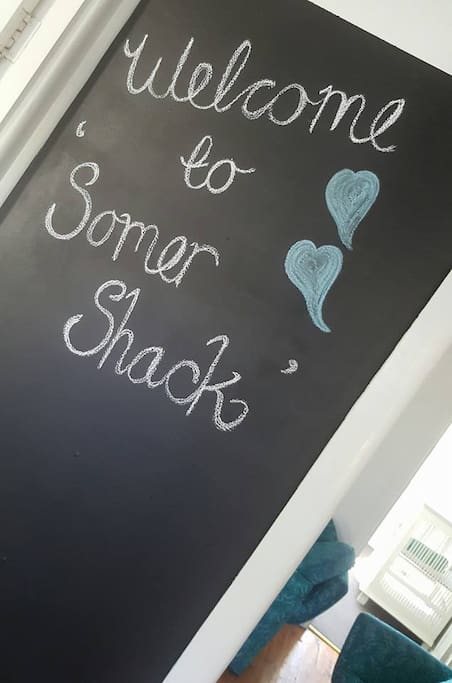 Welcome
to
'Somer
Shack'